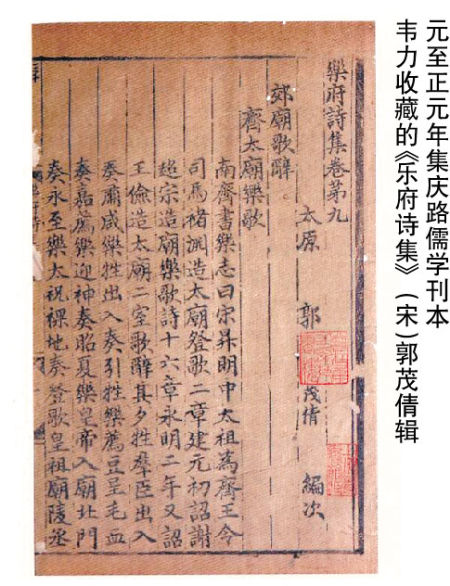 元至正元年集庆路儒学刊本
韦力收藏的《乐府诗集》(宋)郭茂倩辑
樂府詩集卷第九
太原 郭茂倩 編次
郊廟歌辭
齊太廟樂歌
南齊書樂志曰宋昇明中太祖為齊王令
司馬褚淵造太廟登歌二章建元初詔謝
超宗造廟樂歌詩十六章永明二年又詔
王儉造太廟二室歌辭其夕牲羣臣出入
奏肅咸樂牲出入奏引牲樂薦豆呈毛血
奏嘉薦樂迎神奏昭夏樂皇帝入廟北門
奏永至樂太祝祼地奏登歌皇祖廟陵丞